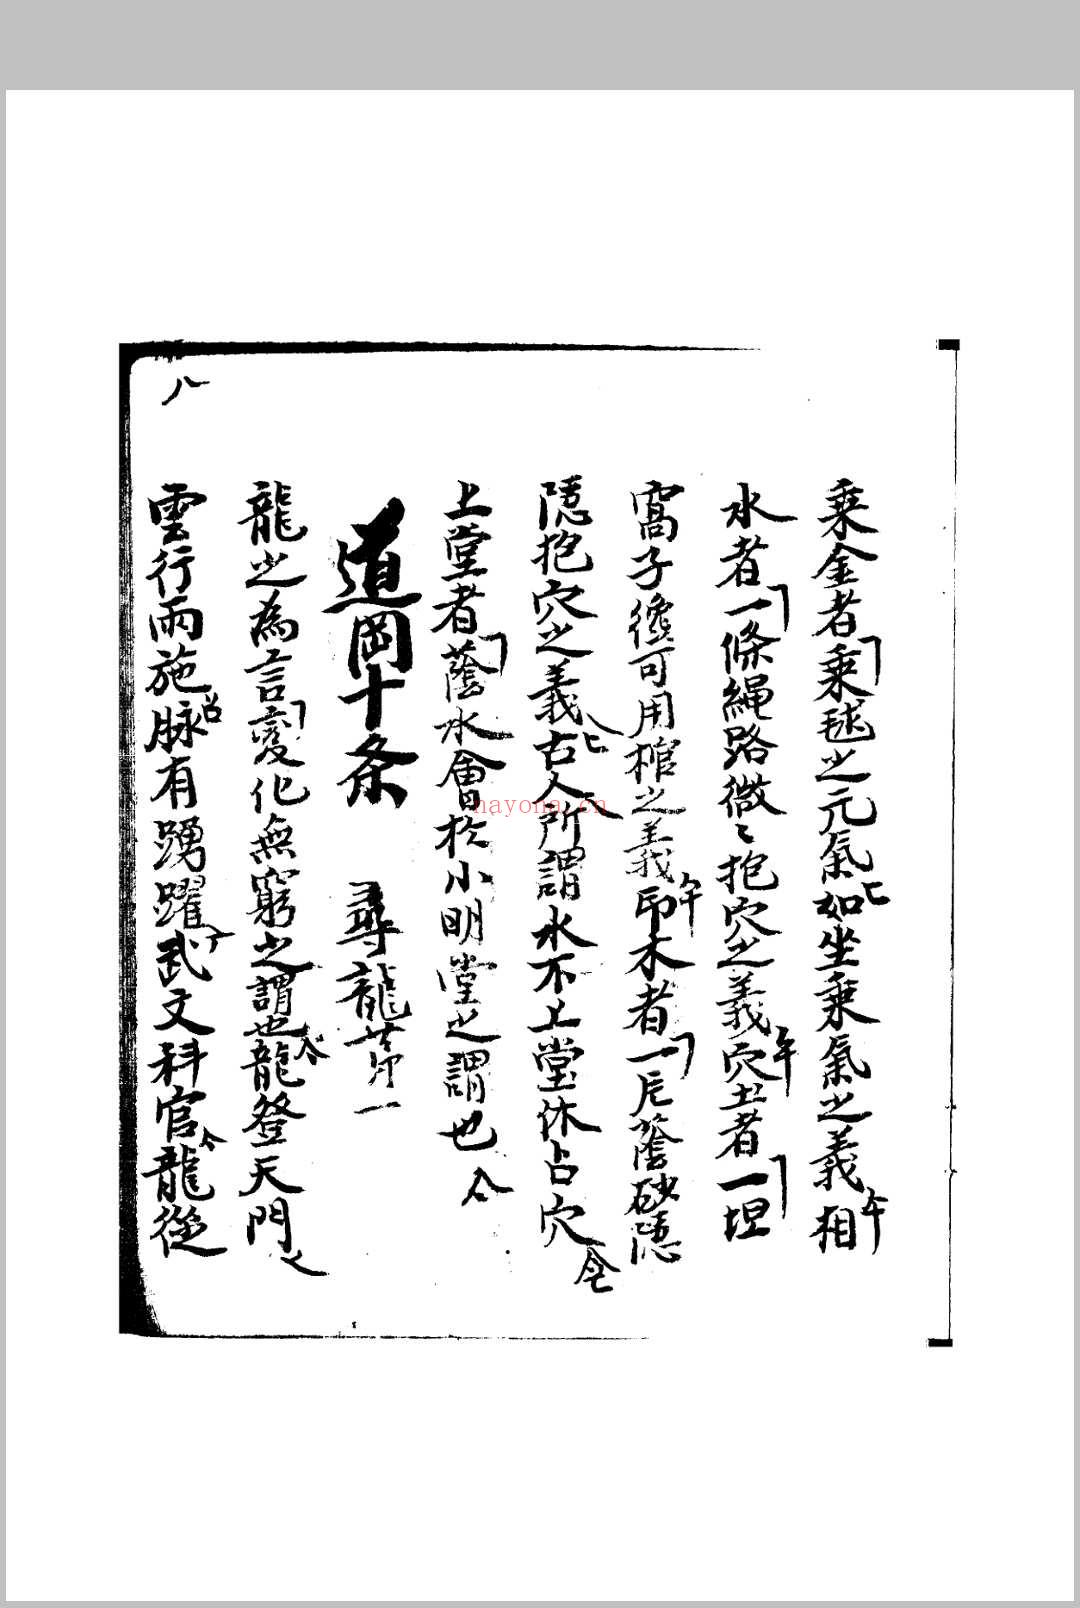 乗金者乗毬之元氣如坐乗氣之義相
水者一條繩路微〻抱穴之義穴土者一坦
窩子纔可用棺之義印木者一片蔭砂隱
隱抱穴之義古人所謂水不上堂休占穴
上堂者蔭水會於小明堂之謂也
道岡十条 尋龍苐一
龍之為言變化無窮之謂也龍登天門
雲行雨施脉有踴躍武文科官龍從
八
nayona.cn